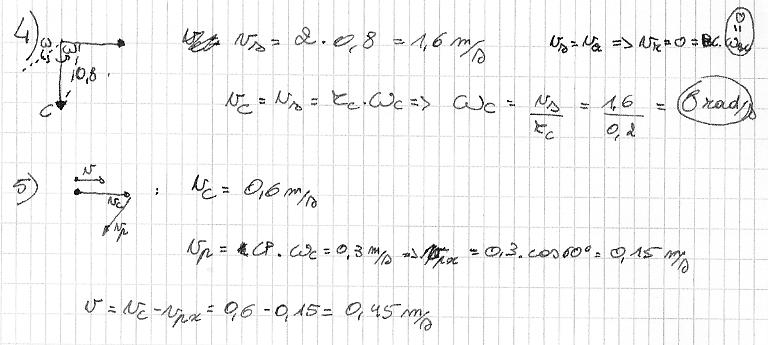 4) ω ω 0,8 C v_s = 2 · 0,8 = 1,6 m/s v_s = v_x => v_x = 0 =
v_C = v_s = r_C · ω_C => ω_C = v_s / r_C = 1,6 / 0,2 = 8 rad/s
5) v v_C v_p : v_C = 0,6 m/s
v_p = CP · ω_C = 0,3 m/s => v_px = 0,3 · cos60° = 0,15 m/s
v = v_C - v_px = 0,6 - 0,15 = 0,45 m/s